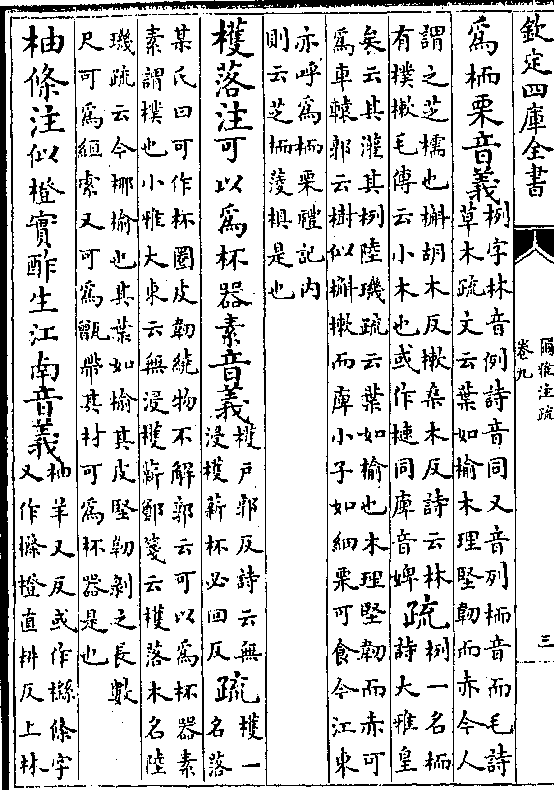 欽定四庫全書
爾雅注疏
卷九
三
爲栭栗音義
栵字林音例詩音同又音列栭音而毛詩
草木疏文云葉如榆木理堅韌而赤今人
謂之芝檽也槲胡木反樕桑木反詩云林
有樸樕毛傳云小木也或作樕同庳音婢
疏
栵一名栭
詩大雅皇
矣云其灌其栵陸璣疏云葉如榆也木理堅韌而赤可
爲車轅郭云樹似槲樕而庳小子如細栗可食今江東
亦呼爲栭栗禮記内
則云芝栭蔆椇是也
檴落注可以爲杯器素音義
檴戸郭反詩云無
浸檴薪杯必回反
疏
檴一
名落
某氏曰可作杯圈皮韌繞物不解郭云可以爲杯器素
素謂樸也小雅大東云無浸檴薪鄭箋云檴落木名陸
璣疏云今椰榆也其葉如榆其皮堅韌剥之長數
尺可爲絙索又可爲甑帶其材可爲杯器是也
柚條注似橙實酢生江南音義
柚羊又反或作櫾條字
又作樤橙直耕反上林